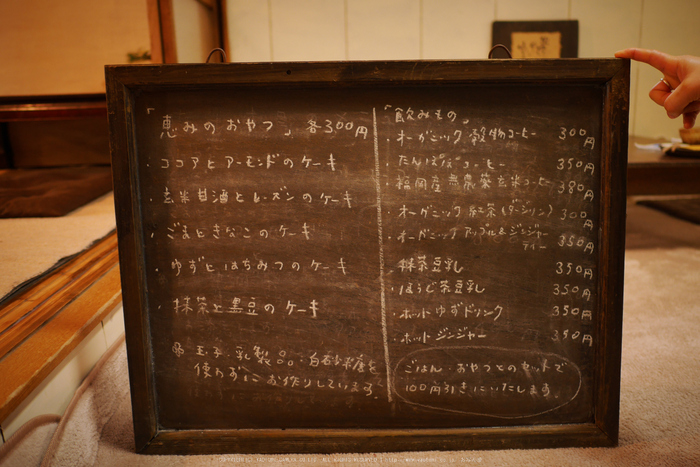 「恵みのおやつ」各300円
・ココアとアーモンドのケーキ
・玄米甘酒とレーズンのケーキ
・ごまときなこのケーキ
・ゆずとはちみつのケーキ
・抹茶と黒豆のケーキ
玉子・乳製品・白砂糖を
使わずにお作りしています。
「飲みもの」
・オーガニック穀物コーヒー 300円
・たんぽぽコーヒー 350円
・福岡産無農薬玄米コーヒー 380円
・オーガニック紅茶(ダージリン) 300円
・オーガニックアップル&ジンジャー
ティー 350円
・抹茶豆乳 350円
・ほうじ茶豆乳 350円
・ホットゆずドリンク 350円
・ホットジンジャー 350円
ごはん・おやつとのセットで
100円引きにいたします。